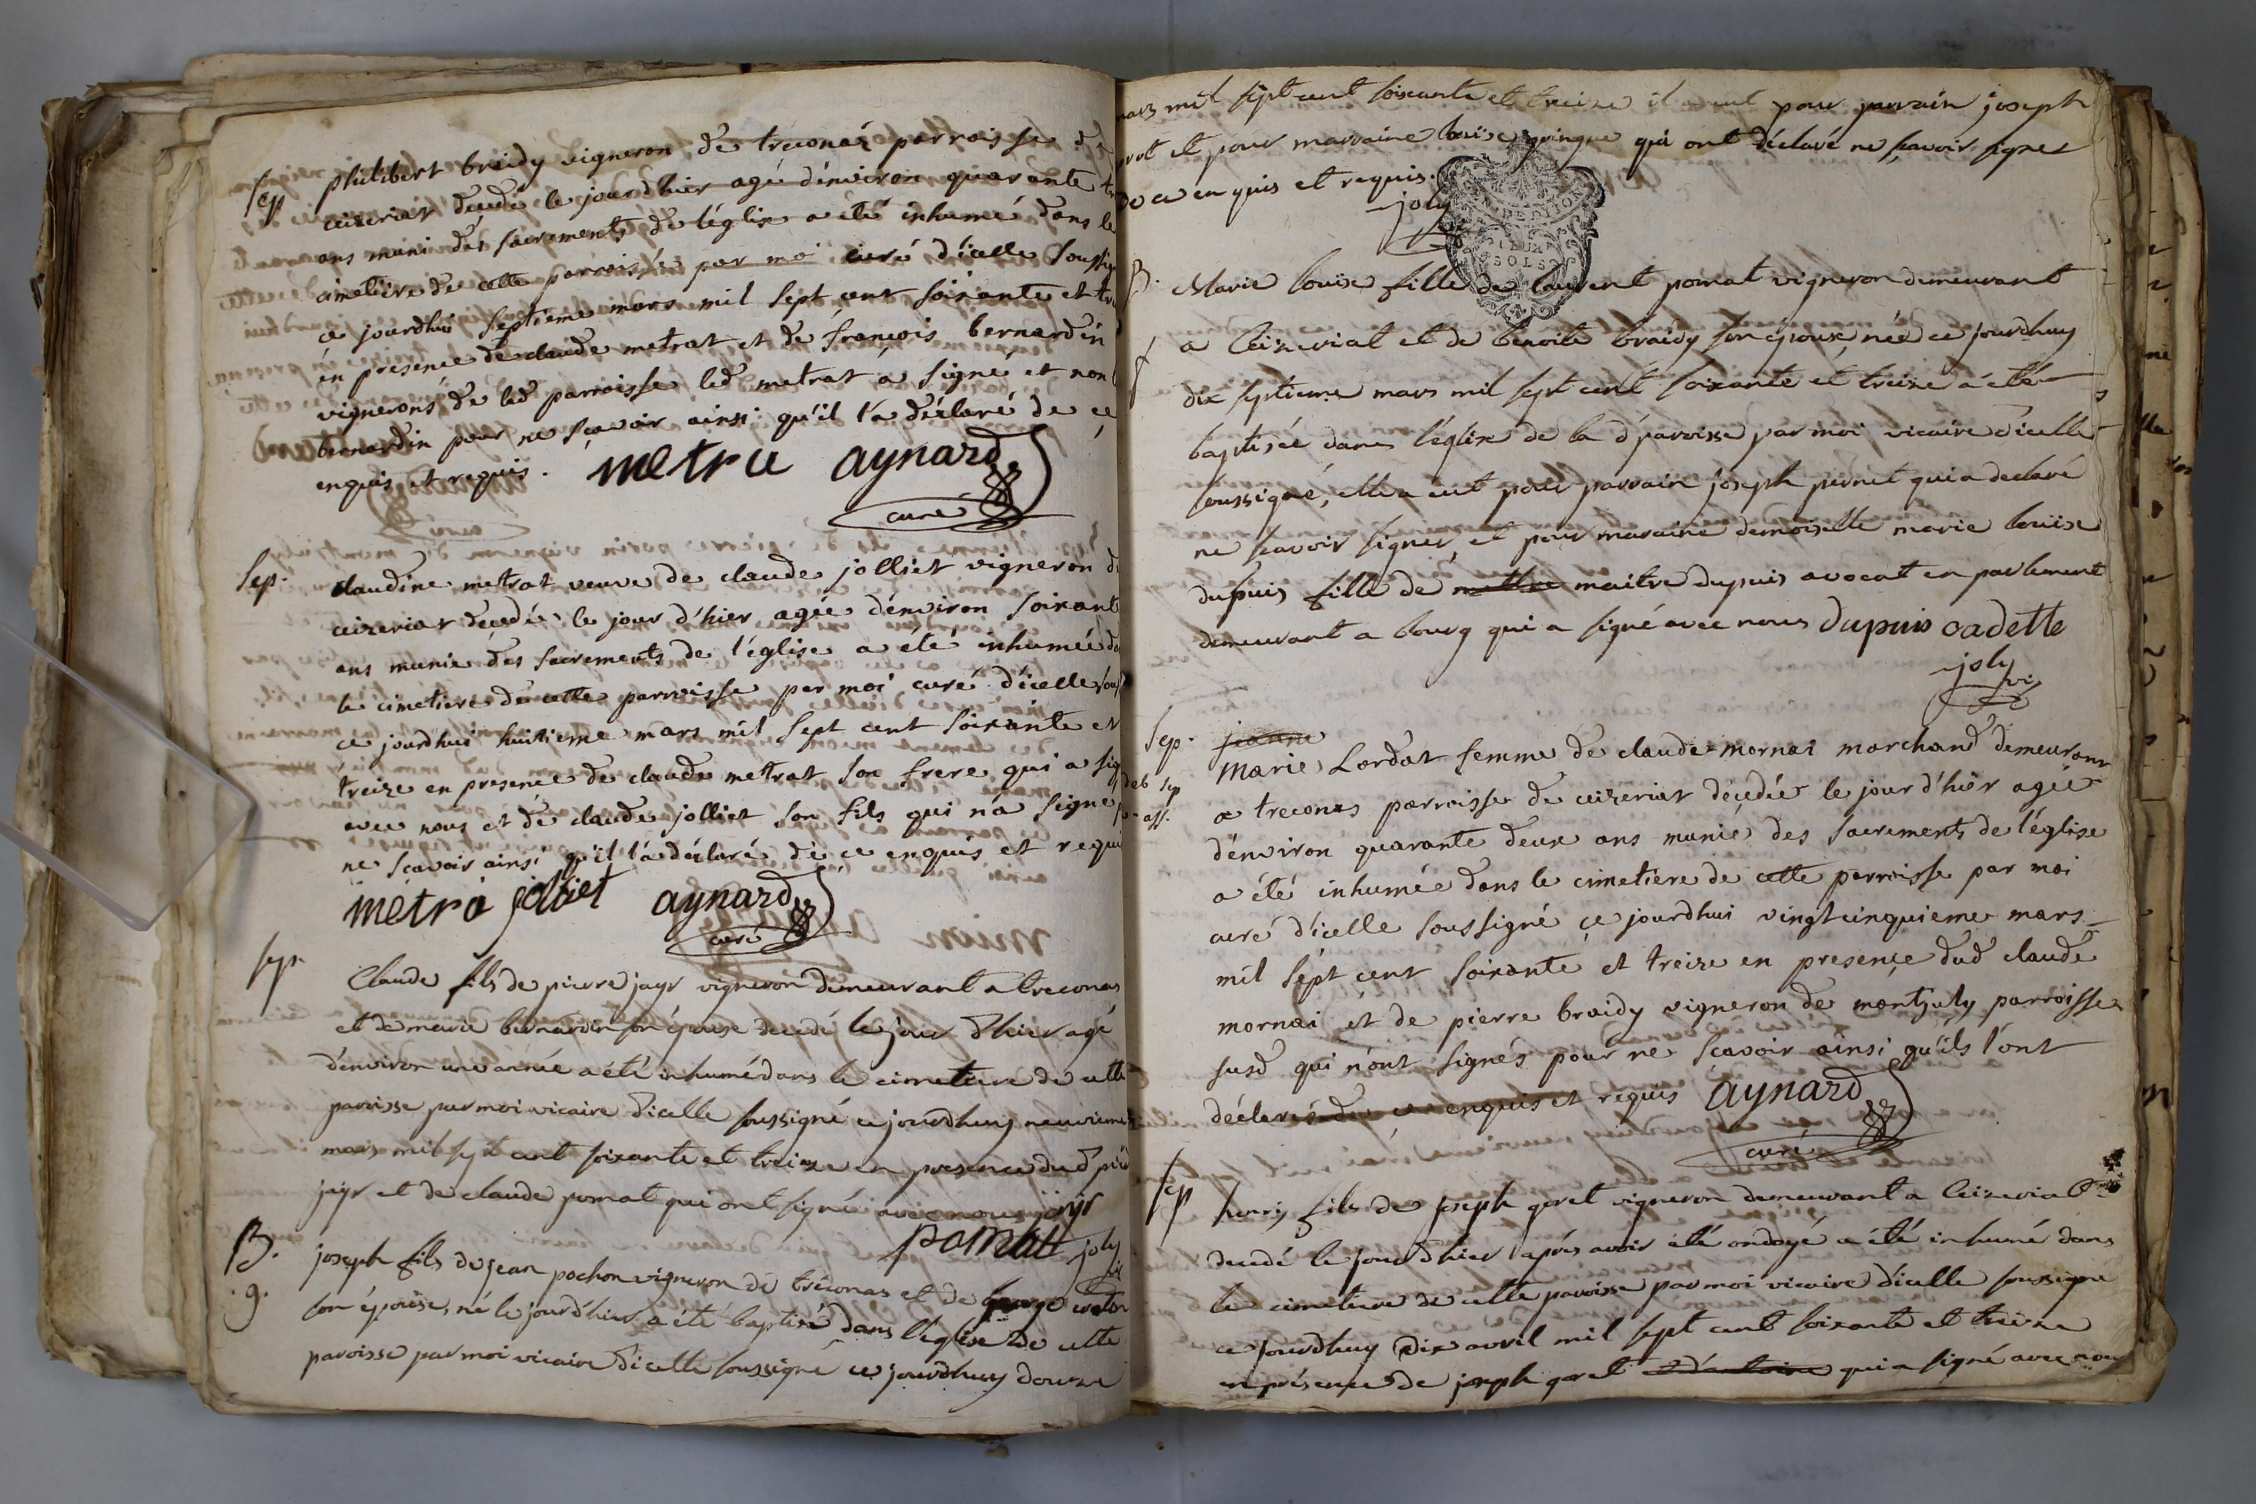 Sep philibert braidy vigneron de treconas parroisse de
ceizeriat décédé le jourdhier agé dénviron quarante
ans muni des sacrements de léglise a été inhumé dans le
cimetiere de cette parroisse par moi curé d'icelle soussig
ce jourdhui septieme mars mil sept cent soixante et tr
én présence de claude metrat et de françois bernardin
vignerons de lad parroisse led metrat a signé et non l
bernardin pour ne sçavoir ainsi qu'il l'a déclaré de ce
enquis et requis. metra aynard
curé
Sep. claudine metrat veuve de claude jolliet vigneron d
ceizeriat décédée le jour d'hier agée dénviron soixante
ans munie des sacrements de l'église a été inhumée d
le cimetiere de cette parroisse par moi curé d'icelle sous
ce jourdhui huitieme mars mil sept cent soixante et
treize en presence de claude metrat son frere qui a sig
avec nous et de claude jolliet son fils qui n'a signé p
ne scavoir ainsi qu'il l'a déclaré de ce enquis et requi
métra jolliet aynard
curé
sep. Claude fils de pierre jayr vigneron demeurant a treconas
et de marie bernardin son épouse decedé le jour d'hier agé
d'énviron une année a été inhumé dans le cimetiere de cette
paroisse par moi vicaire d'icelle soussigné ce jourdhuy neuvieme
mars mil sept cent soixante et treize en presence dud pie
jayr et de claude pomat qui ont signé avec nous jayr
pomat joly
vi
B. joseph fils de jean pochon vigneron de treconas et de
g. son épouse, né le jourd'hier a été baptisé dans l'église de cette
paroisse par moi vicaire d'icelle soussigné ce jourdhuy douze
mars mil sept cent soixante et treize il a eut pour parrain joseph
et pour marraine louise guingue qui ont déclaré ne sçavoir signer
de ce enquis et requis. joly
DEUX
SOLS
B. Marie louise fille de laurent pomat vigneron demeurant
f a Ceizeriat et de benoite braidy son épouse, née ce jourdhuy
dix septieme mars mil sept cent soixante et treize a été
baptisée dans l'église de la d paroisse par moi vicaire d'icelle
soussigné, elle a eut pour parrain joseph pernet qui a declaré
ne scavoir signer et pour maraine demoiselle marie louise
dupuis fille de maitre dupuis avocat en parlement
demeurant a bourg qui a signé avec nous dupuis cadette
joly
vi
Sep. jeanne
marie Lordat femme de claude mornai marchand demeurant
deb sep
p. aff.
a treconas parroisse de ceizeriat décédée le jour d'hier agée
d'énviron quarante deux ans munie des sacrements de l'église
a été inhumée dans le cimetiere de cette parroisse par moi
curé d'icelle soussigné ce jourdhui vingt cinquieme mars
mil sept cent soixante et treize en presence dud claude
mornai et de pierre braidy vigneron de montjuly parroisse
susd qui n'ont signés pour ne sçavoir ainsi qu'ils l'ont
déclarés de ce enquis et requis aynard
curé
sep henry fils de joseph goret vigneron demeurant a Ceizeriat
decedé le jour d'hier aprés avoir été ondoyé a été inhumé dans
le cimetiere de cette paroisse par moi vicaire d'icelle soussigné
ce jourdhuy dix avril mil sept cent soixante et treize
en présence de joseph goret et d'antoine qui a signé avec nous